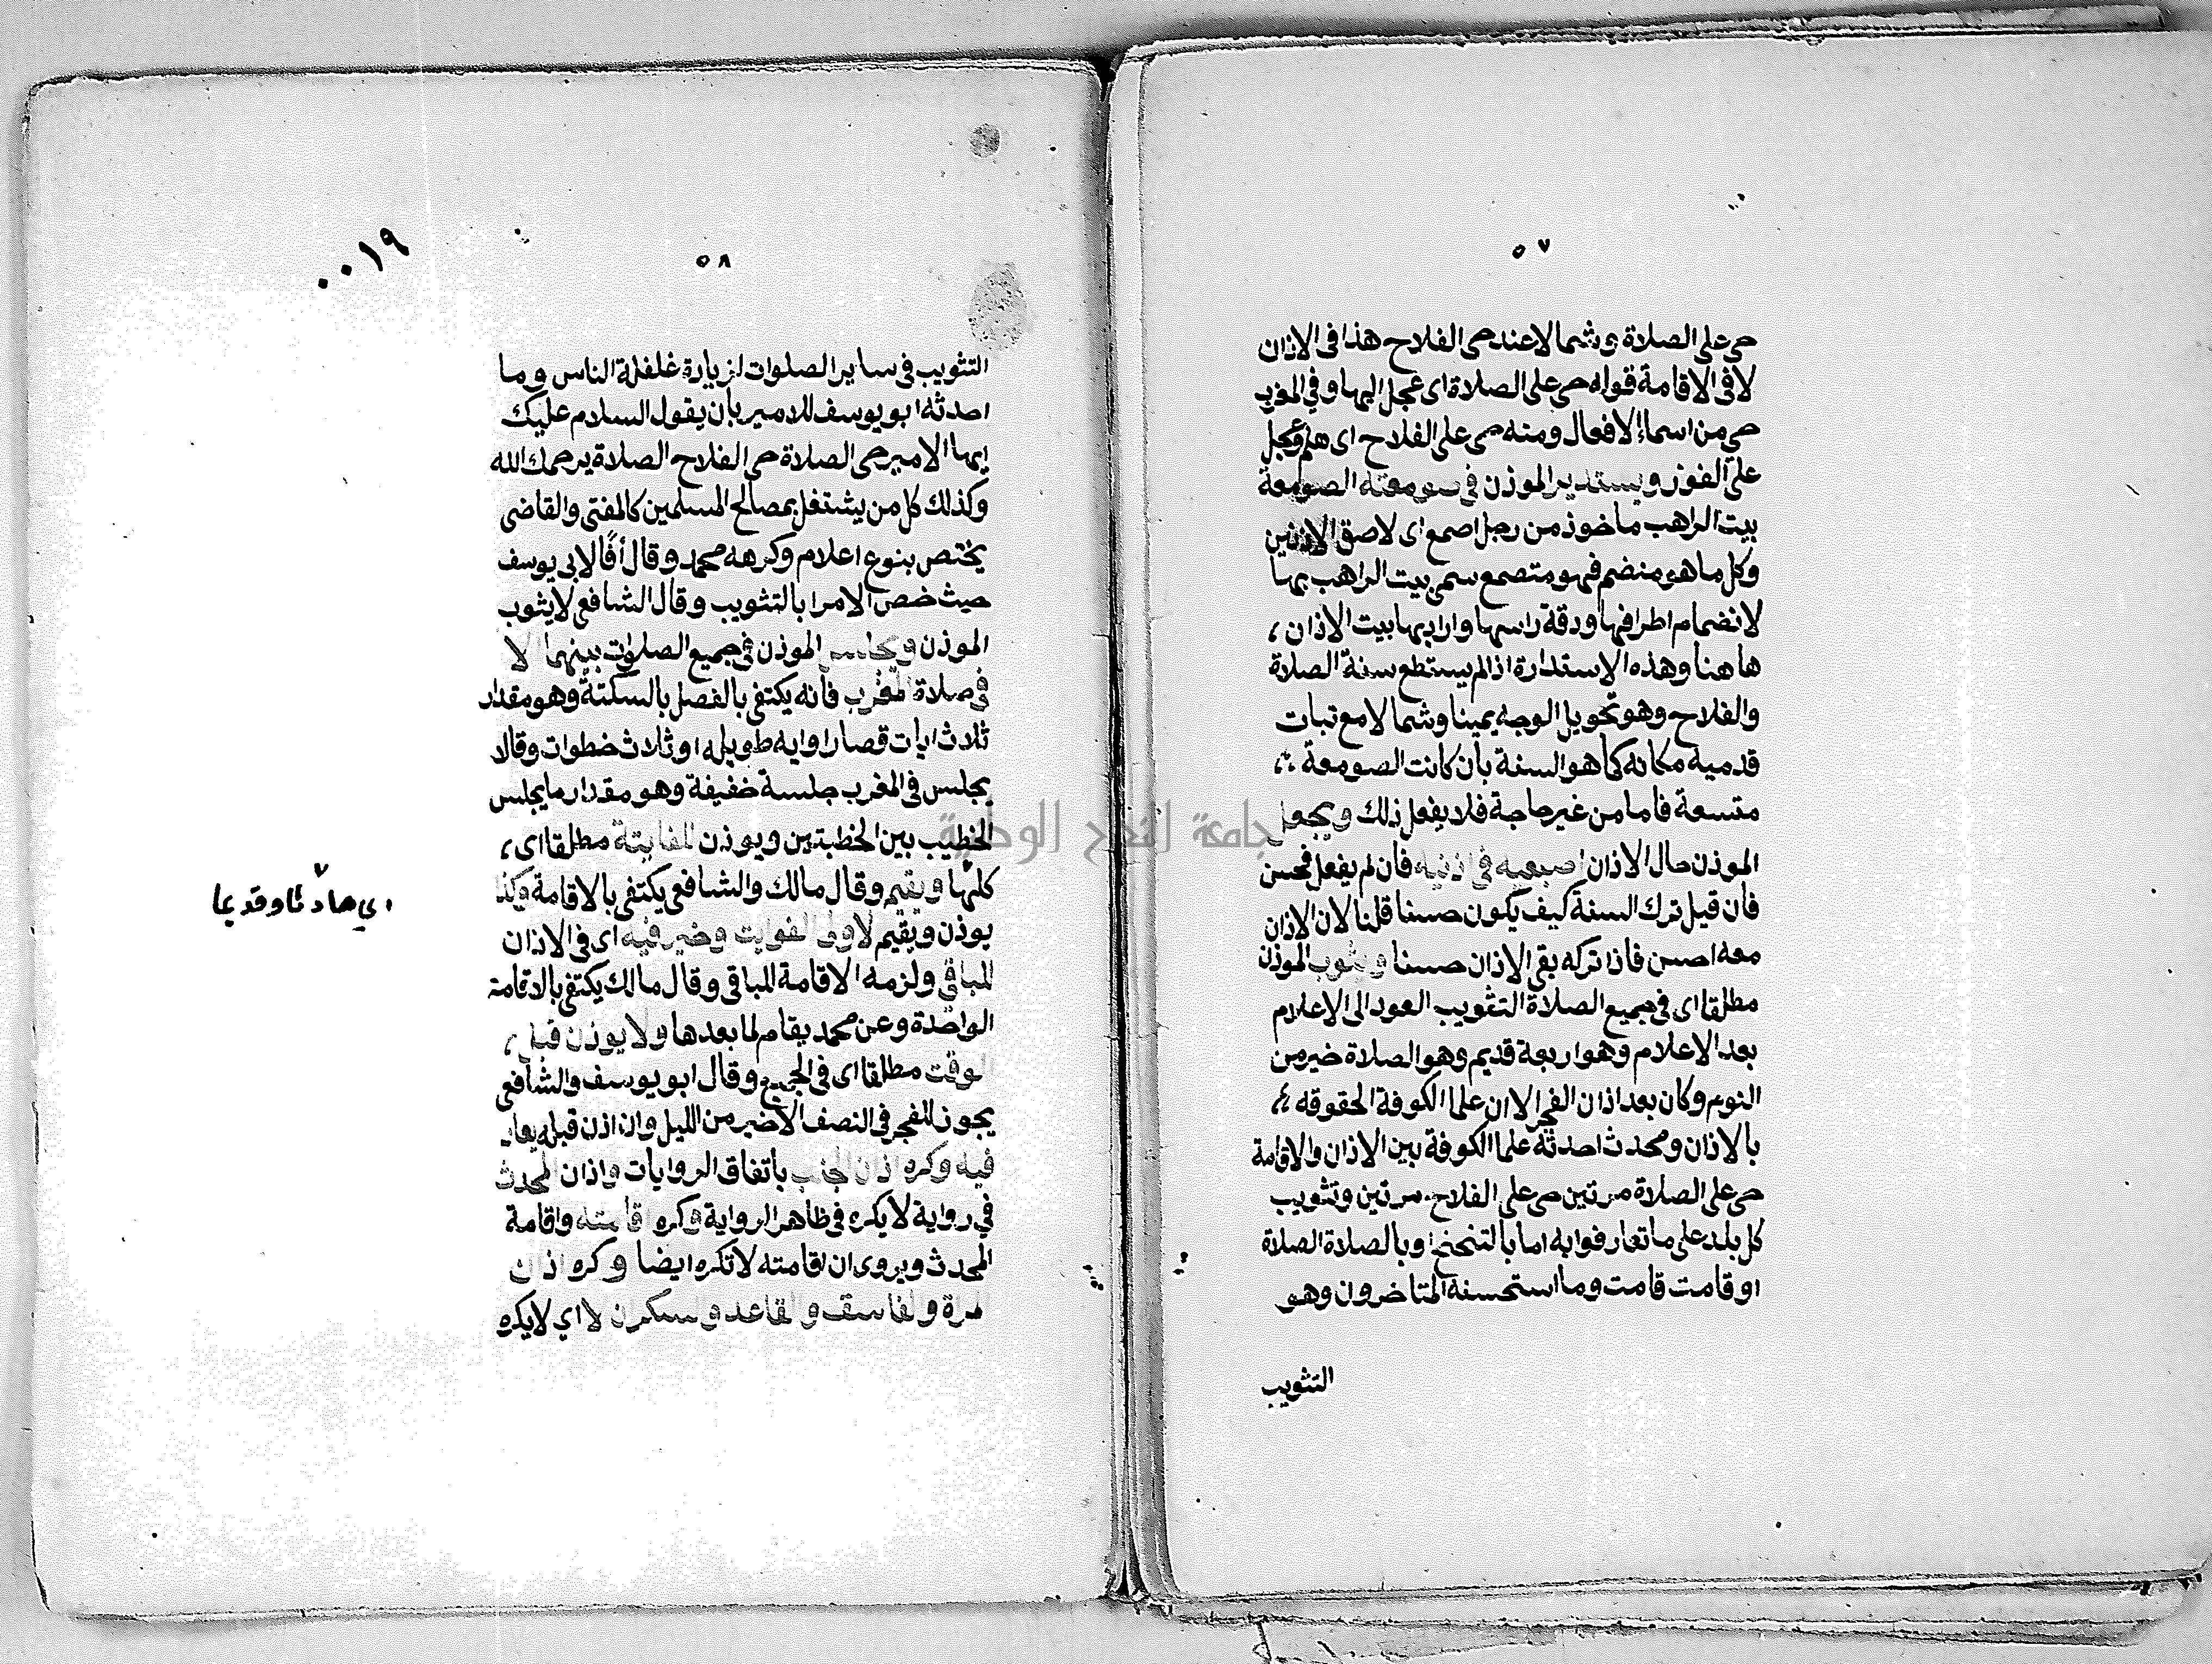 ٥٧
حى على الصلاة وشمالا عند حى الفلاح هذا فى الاذان
لا فى الاقامة قوله حى على الصلاة اى عجل اليها وفي المغرب
حى من اسماء الافعال ومنه حى على الفلاح اى هلم وعجل
على الفوز ويستدير الموذن في صومعته الصومعة
بيت الراهب ماخوذ من رجل اصمع اى لاصق الاذنين
وكل ما هو منضم فهو متصمع سمى بيت الراهب بها
لانضمام اطرافها ودقة راسها واراد بها بيت الاذان
ها هنا وهذه الاستدارة اذا لم يستطع سنة الصلاة
والفلاح وهو تحويل الوجه يمينا وشمالا مع ثبات
قدميه مكانه كما هو السنة بان كانت الصومعة
متسعة فاما من غير حاجة فلا يفعل ذلك ويجعل
الموذن حال الاذان اصبعيه في اذنيه فان لم يفعل فحسن
فان قيل ترك السنة كيف يكون حسنا قلنا لان الاذان
معه احسن فاذا تركه بقى الاذان حسنا ويثوب الموذن
مطلقا اى فى جميع الصلاة التثويب العود الى الاعلام
بعد الاعلام وهو اربعة قديم وهو الصلاة خير من
النوم وكان بعد اذان الفجر الا ان علما الكوفة الحقوقه
بالاذان ومحدث احدثه علما الكوفة بين الاذان والاقامة
حى على الصلاة مرتين حى على الفلاح مرتين وتثويب
كل بلد على ما تعارفوا به اما بالتنحنح او بالصلاة الصلاة
او قامت قامت وما استحسنه المتاخرون وهو
التثويب
٥٨
٠٠١٩
التثويب فى ساير الصلوات لزيادة غلفلة الناس وما
احدثه ابو يوسف للامير بان يقول السلام عليك
ايها الامير حى الصلاة حى الفلاح الصلاة يرحمك الله
وكذلك كل من يشتغل بمصالح المسلمين كالمفتى والقاضى
يختص بنوع اعلام وكرهه محمد وقال أفًا لابى يوسف
حيث خص الامرا بالتثويب وقال الشافعى لا يثوب
الموذن ويجلس الموذن فى جميع الصلوات بينهما الا
فى صلاة المغرب فانه يكتفى بالفصل بالسكتة وهو مقدار
ثلاث ايات قصار او ايه طويله او ثلاث خطوات وقالا
يجلس فى المغرب جلسة خفيفة وهو مقدار ما يجلس
الخطيب بين الخطبتين ويوذن للفايتة مطلقا اى
اي حادثا وقديما
كلها ويقيم وقال مالك والشافعى يكتفى بالاقامة وكذا
يوذن ويقيم لاولى الفوايت وخير فيه اى فى الاذان
للباقي ولزمه الاقامة للباقى وقال مالك يكتفى بالاقامة
الواحدة وعن محمد يقام لما بعدها ولا يوذن قبل
الوقت مطلقا اى فى الجميع وقال ابو يوسف والشافعى
يجوز للفجر فى النصف الاخير من الليل وان اذن قبله يعاد
فيه وكره اذان الجنب باتفاق الروايات واذان المحدث
في رواية لا يكره فى ظاهر الرواية وكره اقامته واقامة
المحدث ويروى ان اقامته لا تكره ايضا وكره اذان
المراة والفاسق والقاعد والسكران لا اي لا يكره